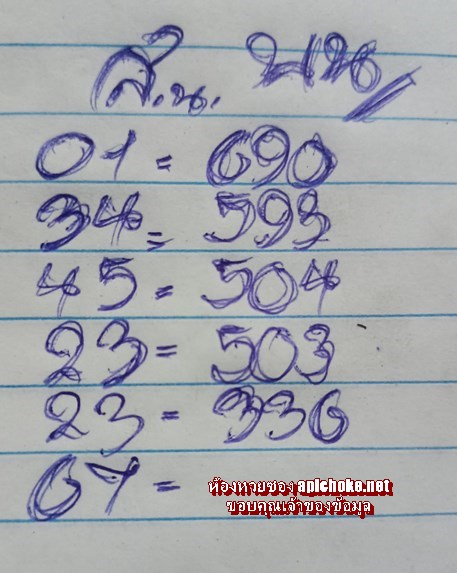 ส.น. บน
07 = 690
34 = 593
45 = 504
23 = 503
23 = 336
67 =
ห้องหวยซอง apichoke.net
ขอบคุณเจ้าของข้อมูล